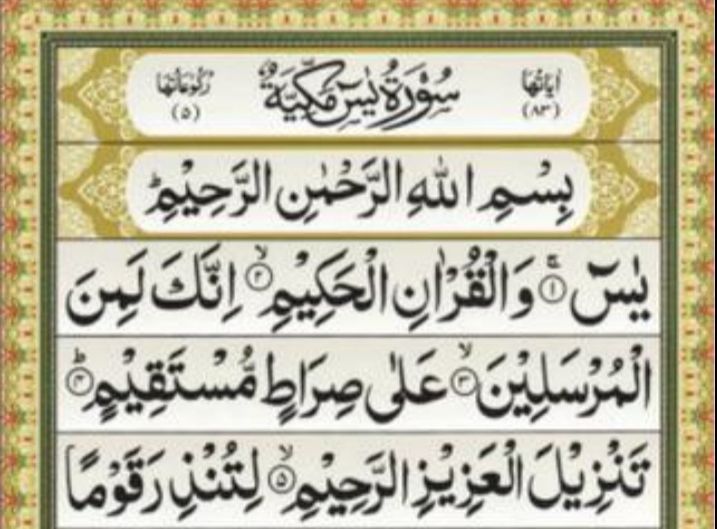 اٰيَاتُهَا (٨٣) سُوْرَةُ يٰسٓ مَكِّيَّةٌ رُكُوْعَاتُهَا (٥)
بِسْمِ اللّٰهِ الرَّحْمٰنِ الرَّحِيْمِ
يٰسٓ ۝١ وَالْقُرْاٰنِ الْحَكِيْمِ ۝٢ اِنَّكَ لَمِنَ
الْمُرْسَلِيْنَ ۝٣ عَلٰى صِرَاطٍ مُّسْتَقِيْمٍ ۝٤
تَنْزِيْلَ الْعَزِيْزِ الرَّحِيْمِ ۝٥ لِتُنْذِرَ قَوْمًا